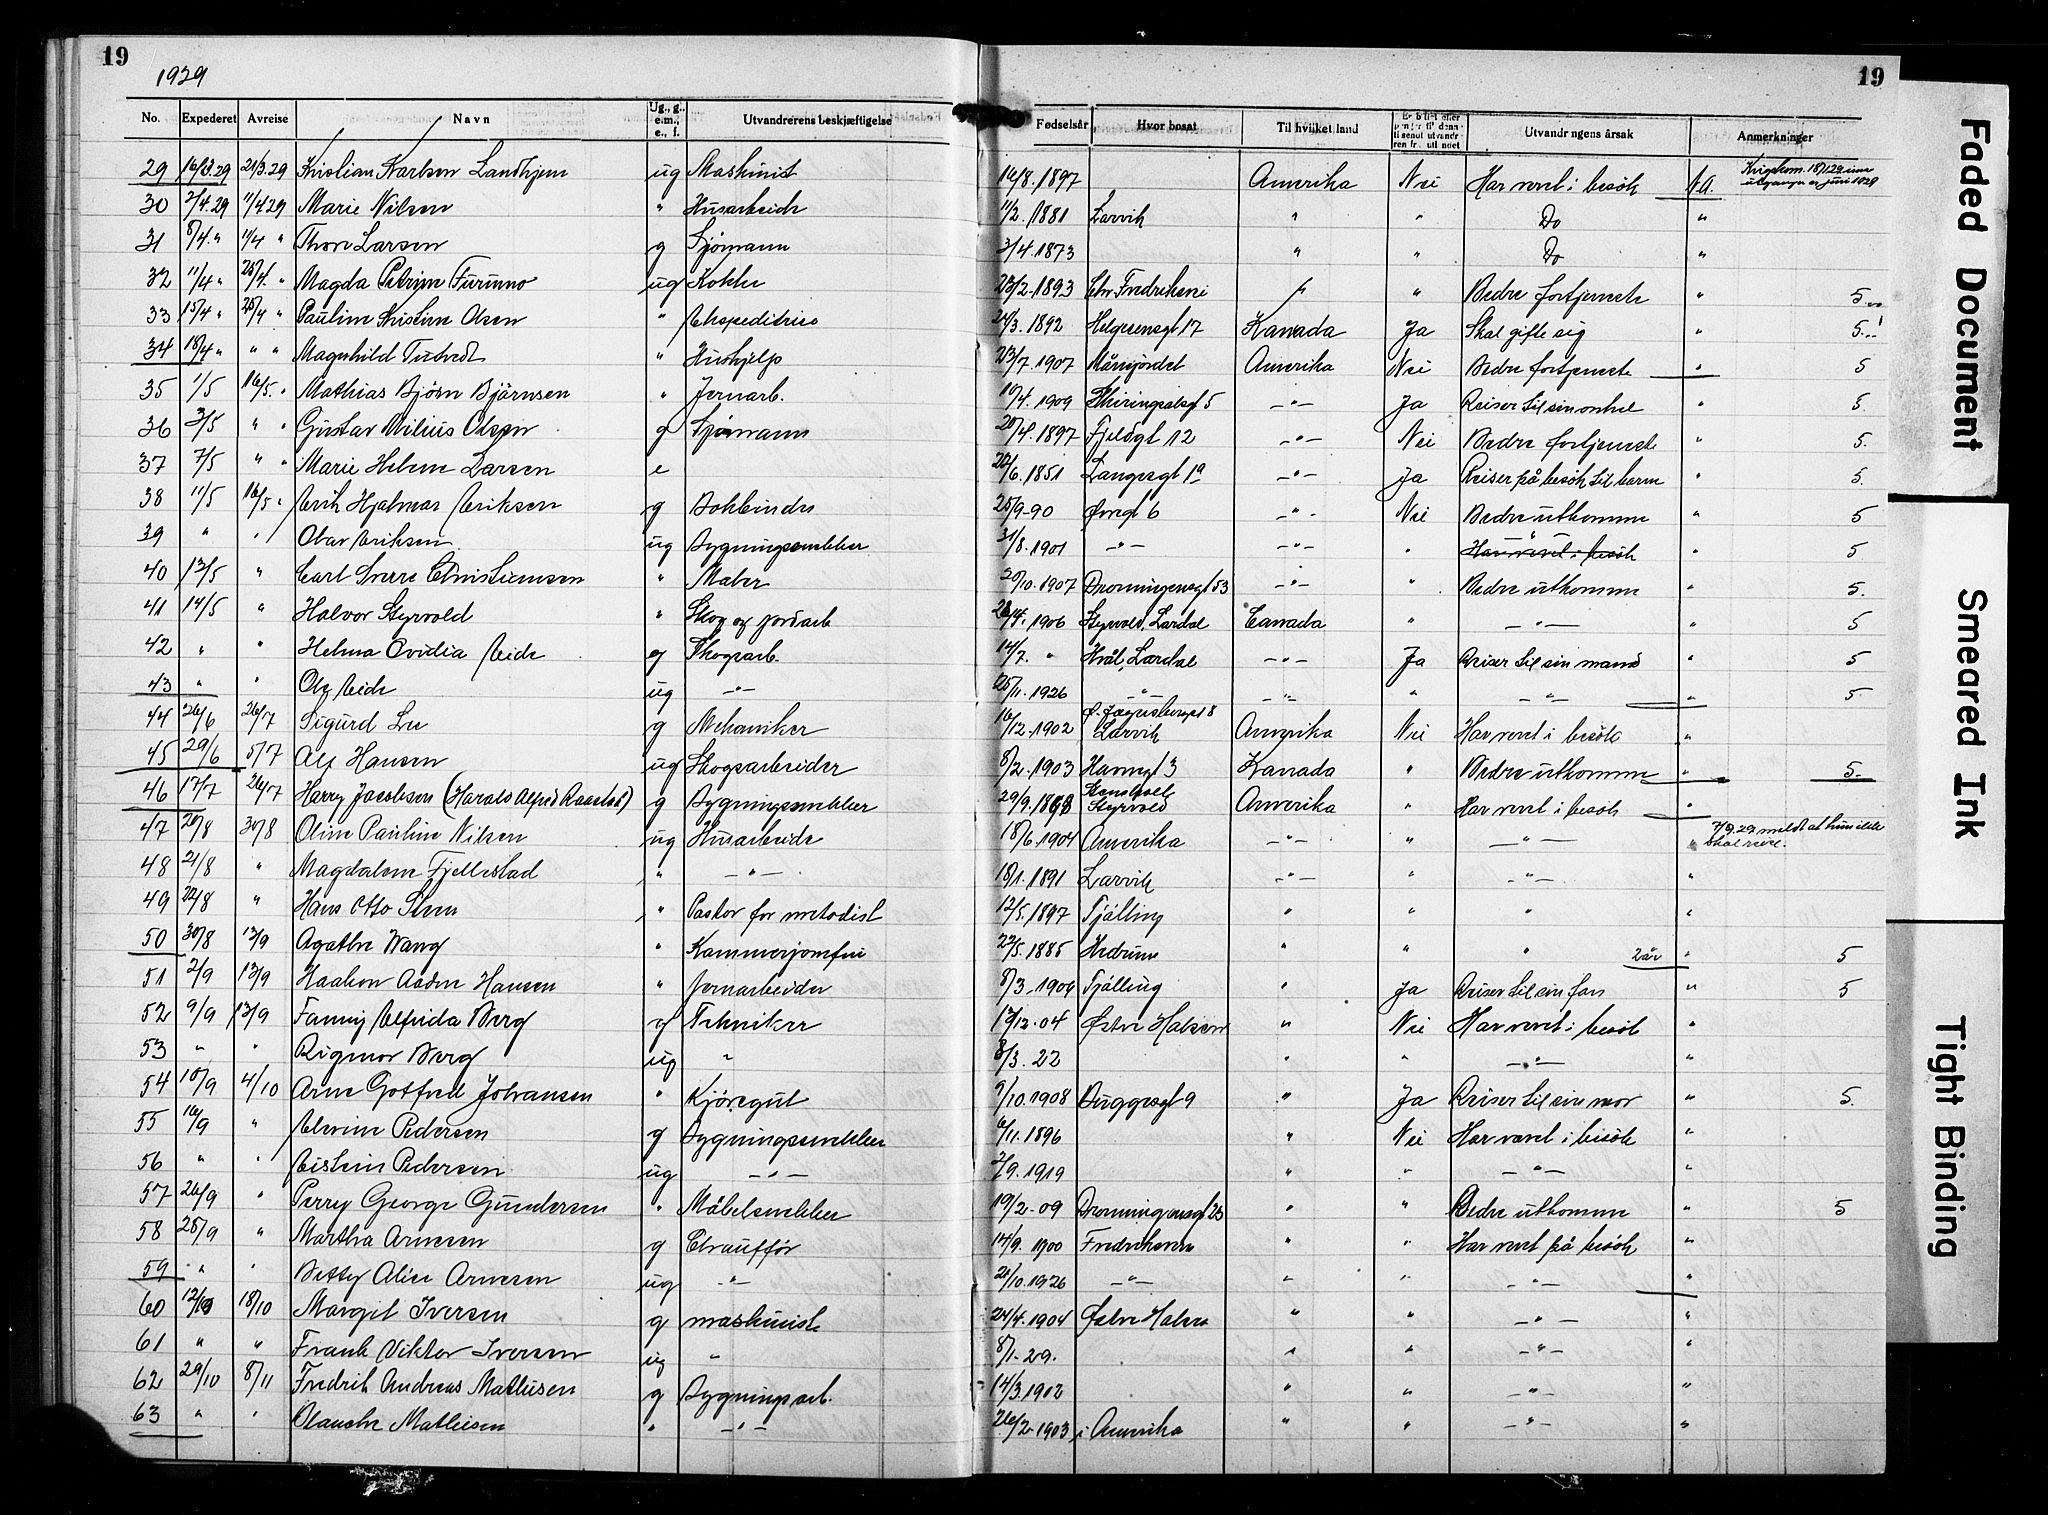 19
1929
19
No. Expederet Avreise Navn Ug., g., e.m., e., f. Utvandrerens beskjæftigelse Fødselsår Hvor bosat Til hvilket land Utvandringens årsak Anmerkninger
29 16/3.29 21/3.29 Kristian Karlsen Landhjem ug Maskinist 16/8.1897 Amerika Nei Har veret i besök N.A.
30 2/4.29 11/4.29 Marie Nilsen " Husarbeide 11/2.1881 Larvik " " Do "
31 8/4." 11/4 " Thor Larsen g Sjömann 3/4.1873 " " Do "
32 11/4 " 25/4. " Magda Petrine Furumo ug Kokke 23/2.1893 Chr Fredriksvei " " Bedre fortjeneste " 5...
33 15/4 " 25/4 " Pauline Kristine Olsen " Ekspeditrise 24/3.1892 Helgesensgt 17 Kanada Ja Skal gifte sig " 5...
34 18/4 " " " Magnhild Tutvedt " Hushjelp 23/7.1907 Månejordet Amerika Nei Bedre fortjeneste " 5
35 1/5 16/5. " Mathias Björn Björnsen " Jernarb. 10/4.1909 Skiringsalsgt 5 -"- Ja Reiser til sin onkel " 5.
36 3/5 " " Gustav Milius Olsen g Sjömann 20/4.1897 Fjeldgt 12 -"- Nei Bedre fortjeneste " 5.
37 7/5 " " Marie Helene Larsen e 20/6.1851 Langesgt 1a -"- Ja Reiser på besök til barn " 5.
38 11/5 16/5 " Erik Hjalmar Eriksen g Bokbinder 25/9-90 Øvregt 6 -"- Nei Bedre utkomme " 5
39 " " Olav Eriksen ug Bygningssnekker 31/8.1901 -"- -"- " -"- Har veret i besök " 5
40 13/5 " Carl Sverre Christiansen " Maler 20/10.1907 Dronningensgt 53 -"- " Bedre utkomme " 5.
41 14/5 " Halvor Styrvold " Skog og jordarb 26/4.1906 Styrvold, Lardal Canada " -"- " 5
42 " " Helma Ovidia Eide g Skogsarb. 14/7. " Hvål, Lardal -"- Ja Reiser til sin mand " 5
43 " " Olg Eide ug -"- 25/11.1926 " -"- " -"- " 5
44 26/6 26/7 Sigurd Lie g Mekaniker 16/12.1902 Larvik Amerika Nei Har veret i besök "
45 29/6 5/7 Alf Hansen ug Skogsarbeider 8/2.1903 Havnegt 3 Kanada " Bedre utkomme " 5.
46 17/7 26/7 Harry Jacobsen (Harald Alfred Raastad) g Bygningssnekker 29/9.1898 Styrvold Amerika " Har veret i besök "
47 20/8 30/8 Oline Pauline Nilsen ug Husarbeide 18/6.1904 Amerika -"- " -"- " 7/9.29 meldt at hun ikke skal reise.
48 21/8 " Magdalene Fjellestad " -"- 18/1.1891 Larvik -"- " -"- "
49 22/8 " Hans Otto Steen " Pastor for metodist 12/5.1897 Tjölling " " " "
50 30/8 13/9 Agathe Wang " Kammerjomfru 22/5.1885 Hedrum " " " 2 år " 5
51 2/9 13/9 Haakon Asden Hansen " Jernarbeider 8/3.1906 Tjölling " Ja Reiser til sin far " 5
52 9/9 13/9 Fanny Elfrida Berg g Tekniker 17/12-04 Østre Halsen " Nei Har veret i besök "
53 " " Rigmor Berg ug " 8/3.22 " " -"- "
54 10/9 4/10 Arne Gotfred Johansen " Kjöregut 9/10.1908 Buggesgt 9 " Ja Reiser til sin mor " 5.
55 16/9 " Elvine Pedersen g Bygningssnekker 6/11.1896 " Nei Har veret i besök "
56 " " Eistein Pedersen ug -"- 2/9.1919 " " -"- "
57 26/9 " Perry George Gundersen " Möbelsnekker 19/2-09 Dronningensgt 23 " " Bedre utkomme " 5
58 28/9 " Martha Arnesen g Chraufför 14/9.1900 Fredriksvern " " Har veret på besök "
59 " " Betty Alice Arnesen ug -"- 21/10.1926 -"- " " -"- "
60 12/10 18/10 Margit Iversen g maskinist 24/4.1904 Østre Halsen " " -"- "
61 " " Frank Viktor Iversen ug " 8/1-29. " " -"- "
62 29/10 8/11 Fredrik Andreas Mathisen g Bygningsarb. 14/3.1902 " " -"- "
63 " " Blanche Mathisen " -"- 26/2-1903 i Amerika " " -"- "
Faded Document
Smeared Ink
Tight Binding